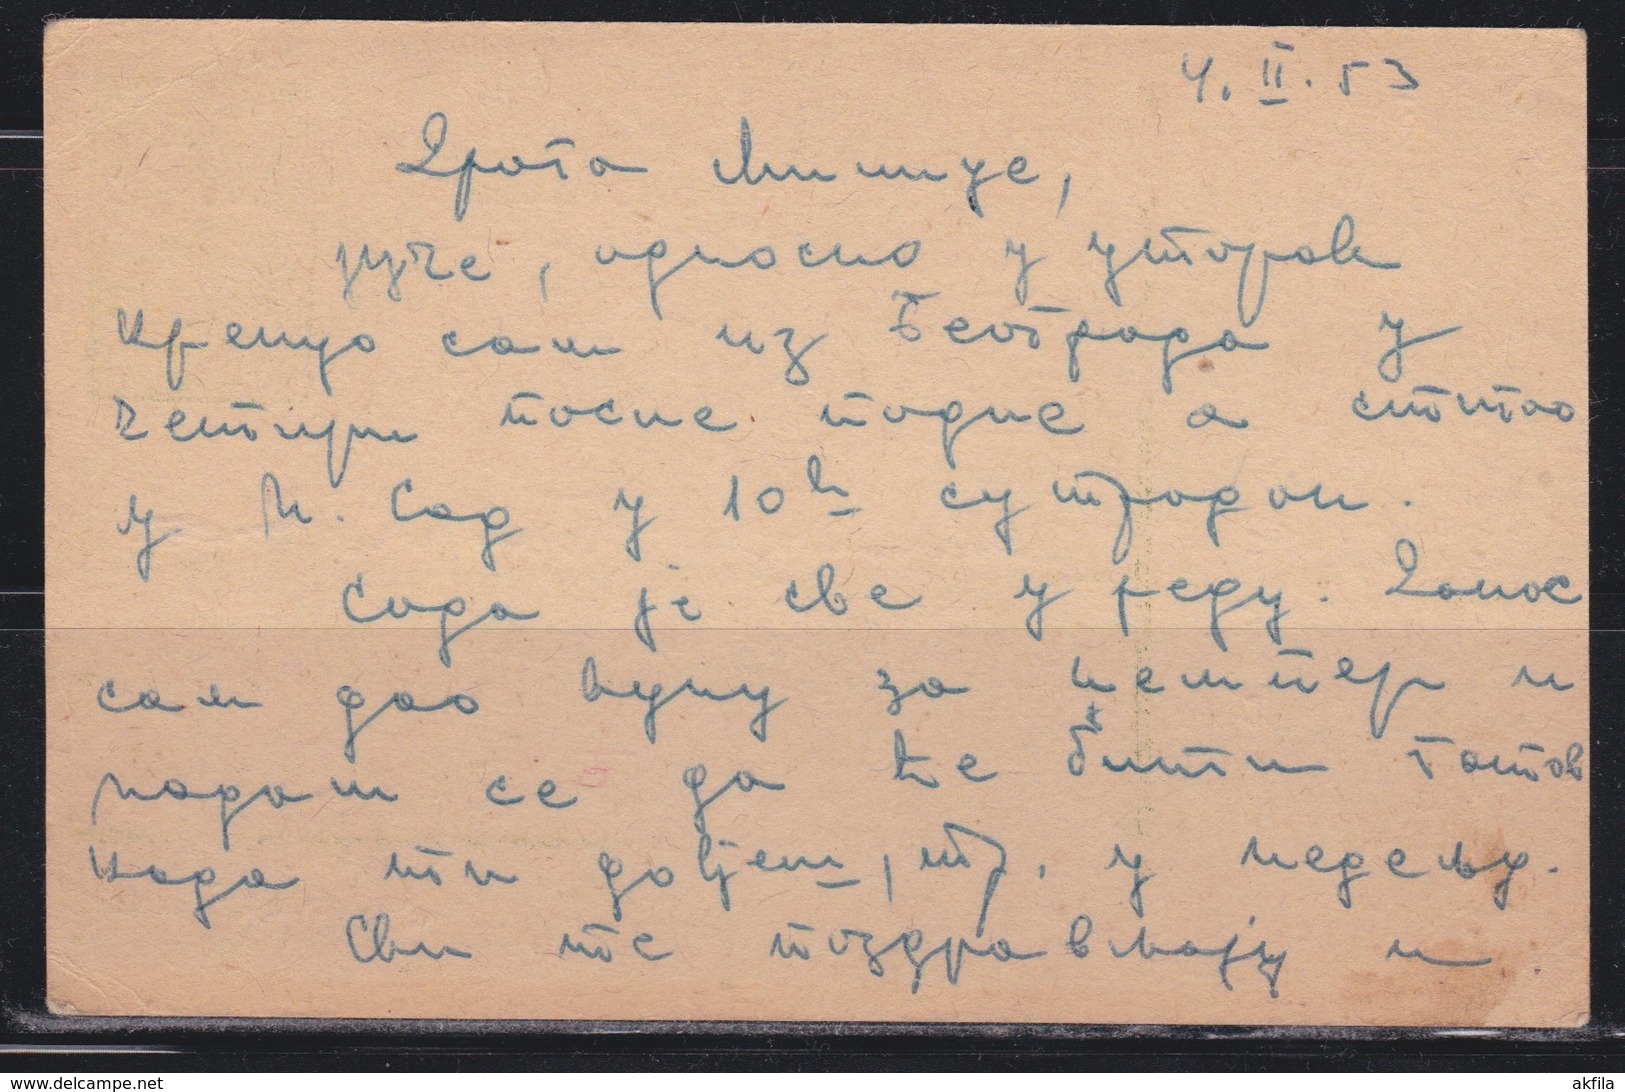 4. II. 53
Драга Милице,
јуче, односно у уторак
кренуо сам из Београда у
четири после подне а стигао
у Н. Сад у 10h сутрадан.
Сада је све у реду. Данас
сам дао вуну за џемпер и
надам се да ће бити готов
када ти дођеш, тј. у недељу.
Сви те поздрављају и
akfila
www.delcampe.net